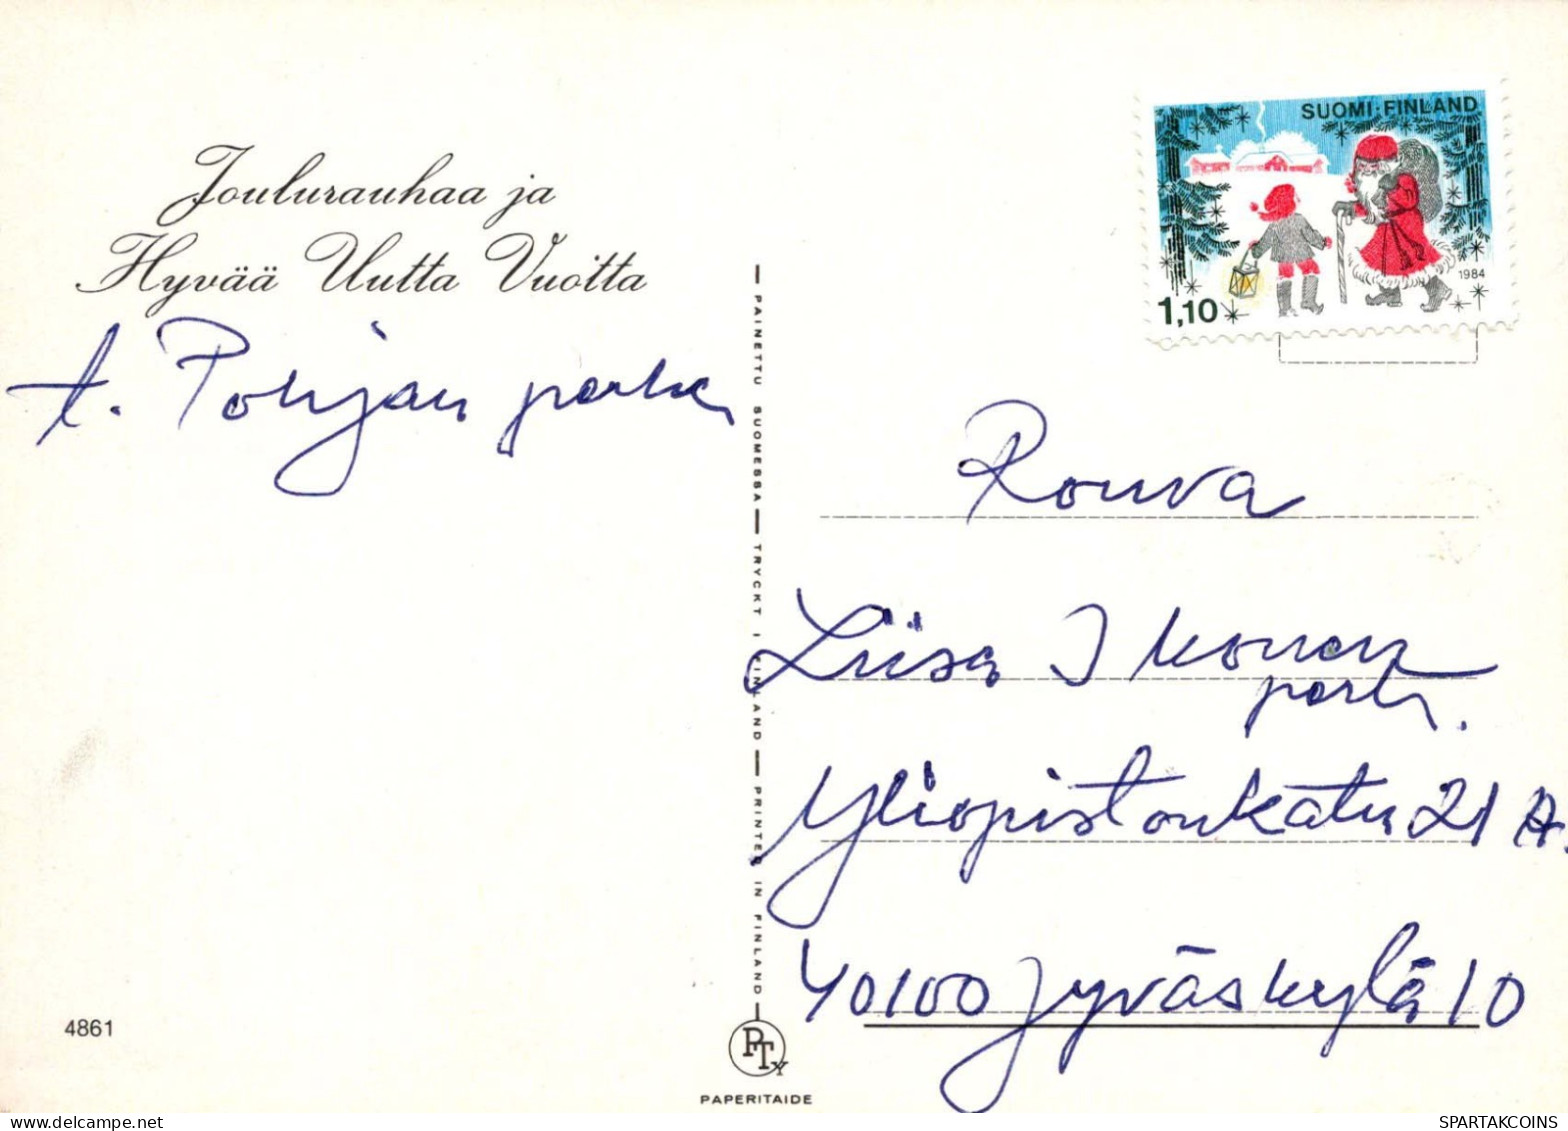 Joulurauhaa ja
Hyvää Uutta Vuotta
t. Pohjan perhe
4861
PAINETTU SUOMESSA — TRYCKT I FINLAND — PRINTED IN FINLAND
PTY
PAPERITAIDE
SUOMI·FINLAND
1984
1,10
Rouva
Liisa Ikonen
perh.
Yliopistonkatu 21 A.
40100 Jyväskylä 10
SPARTAKCOINS
https://www.delcampe.net